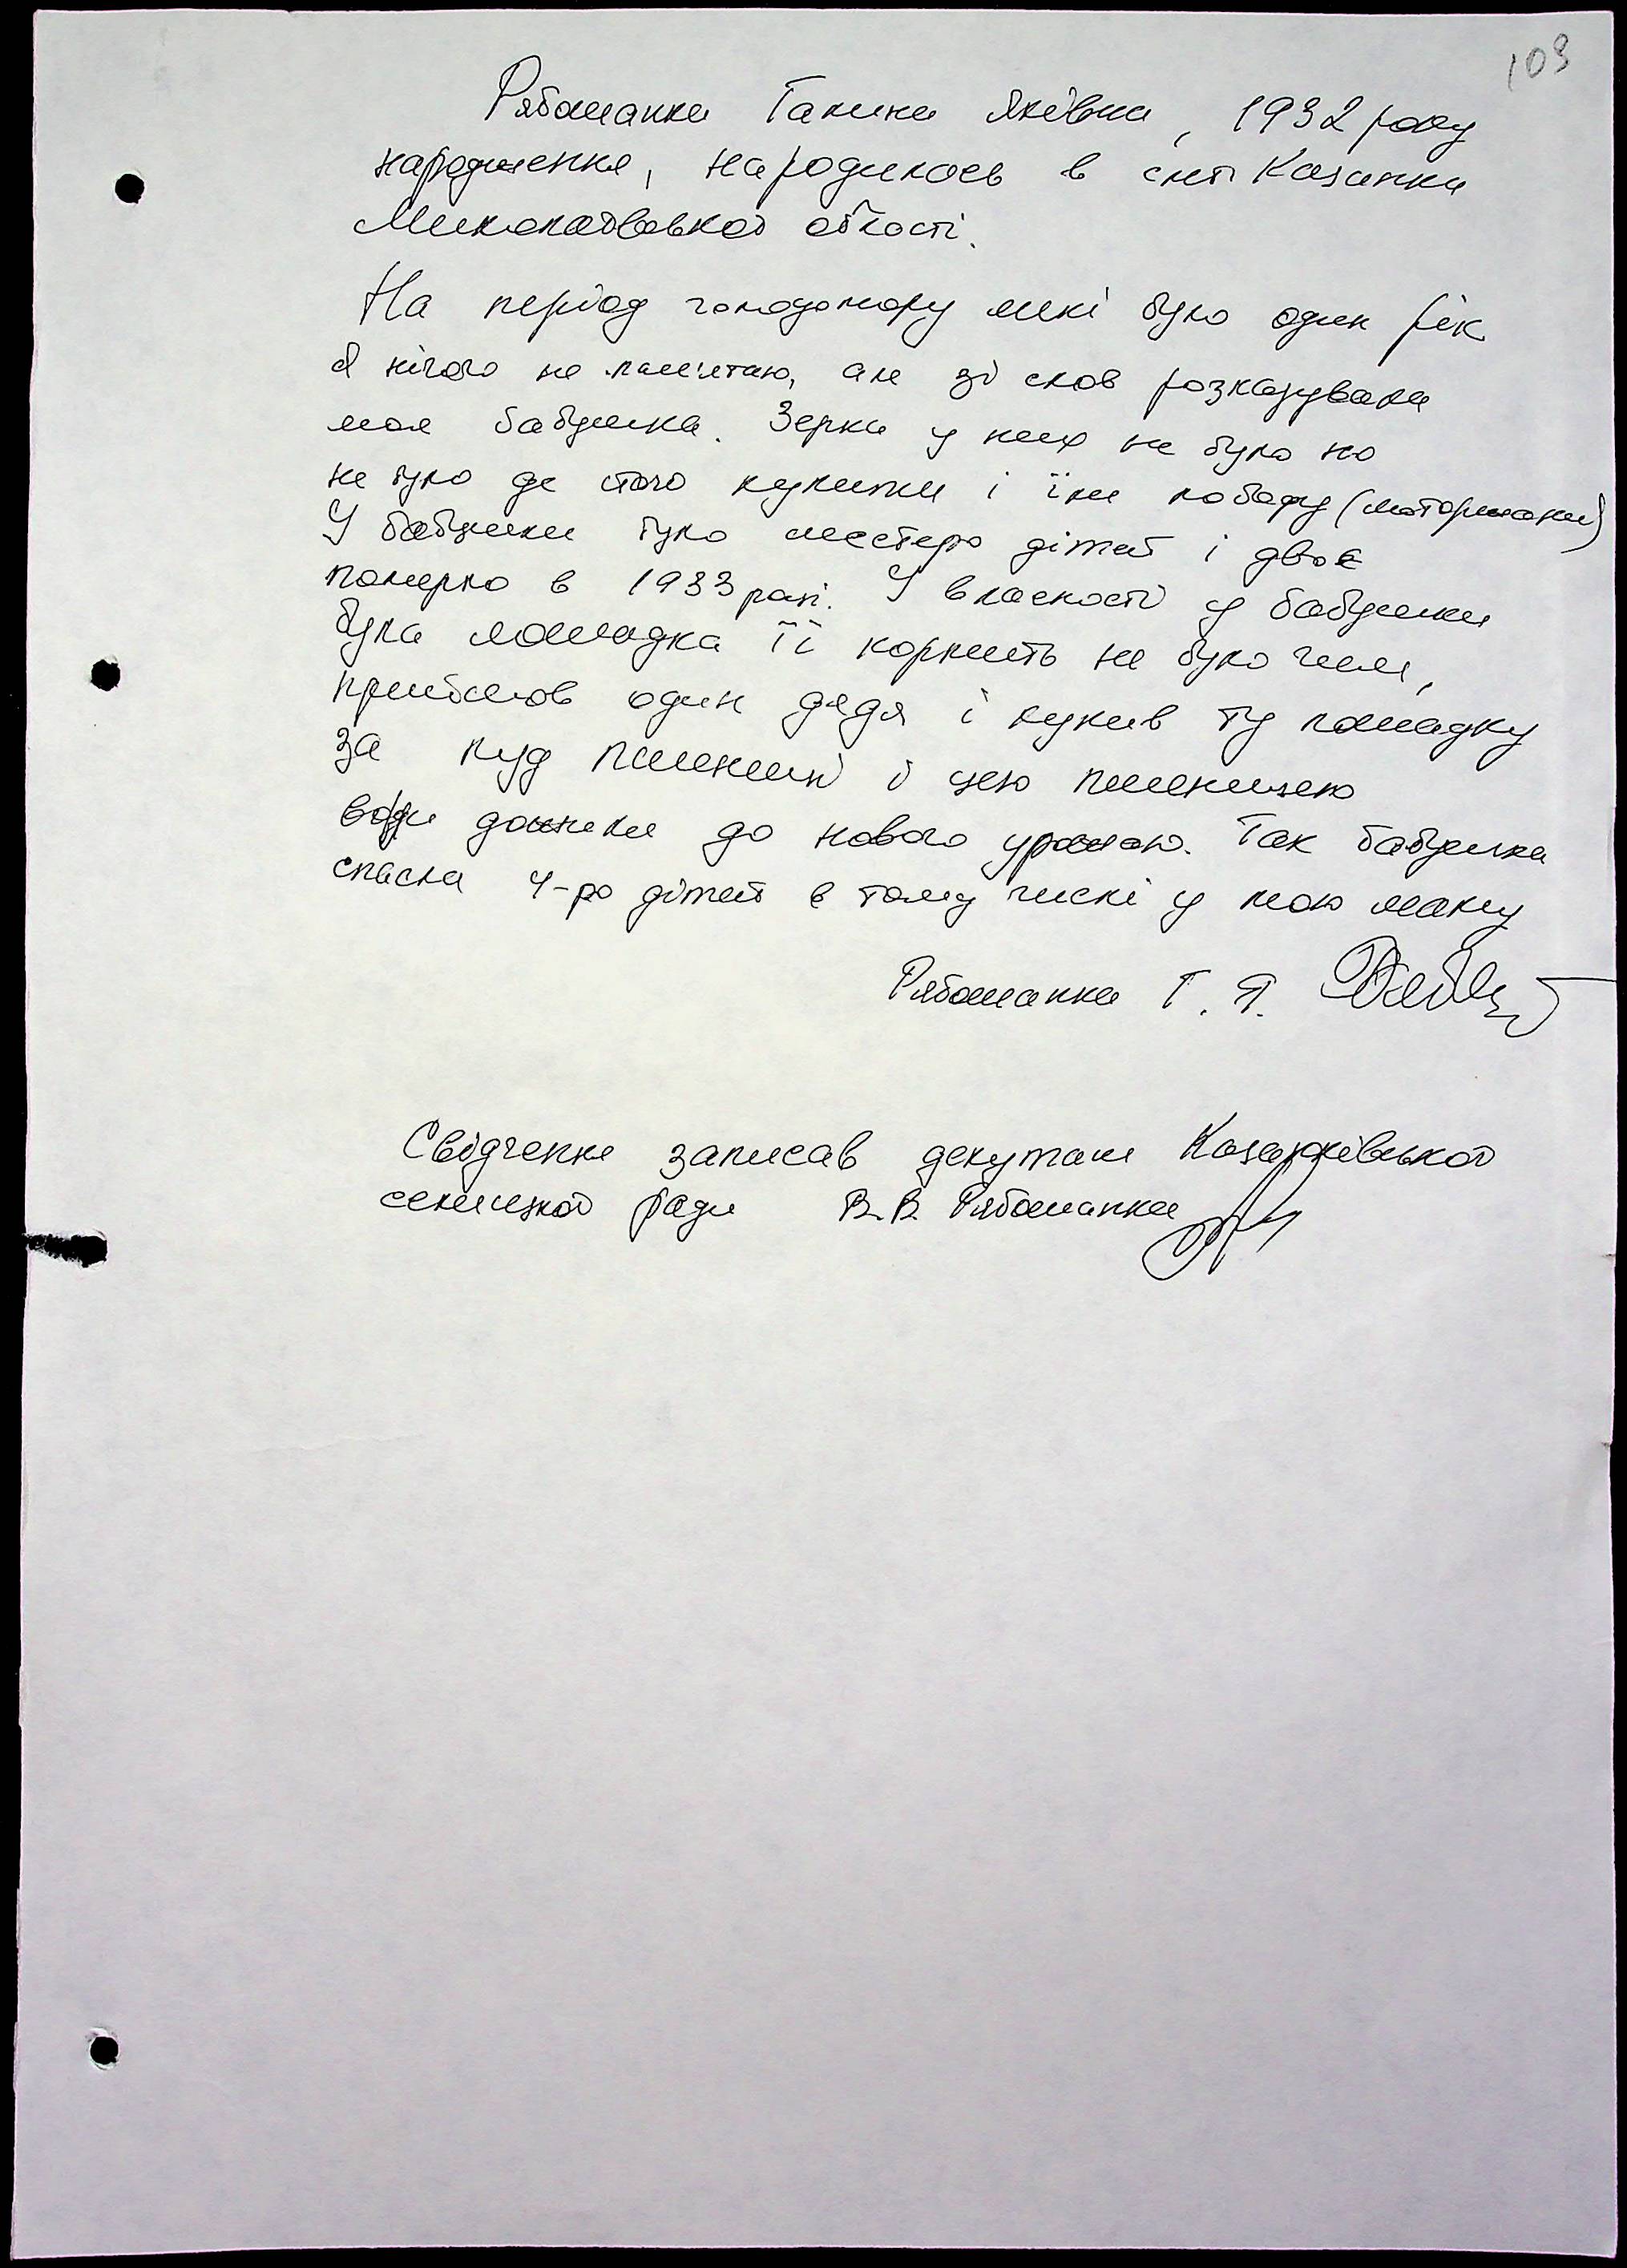 109
Рябошапка Галина Яківна, 1932 року
народження, народилась в смт Казанка
Миколаївської області.
На період голодомору мені було один рік
Я нічого не пам'ятаю, але зі слов розказувала
моя бабушка. Зерна у них не було но
не було де його купити і їли лободу (маторжани)
У бабушки було шестеро дітей і двоє
померло в 1933 році. У власності у бабушки
була лошадка її кормить не було чим,
прийшов один дядя і купив ту лошадку
за пуд пшениці і цею пшеницею
вони дожили до нового урожаю. Так бабушка
спасла 4-ро дітей в тому числі у мою маму
Рябошапка Г. Я.
Свідчення записав депутат Казанківської
селищної ради В.В. Рябошапка